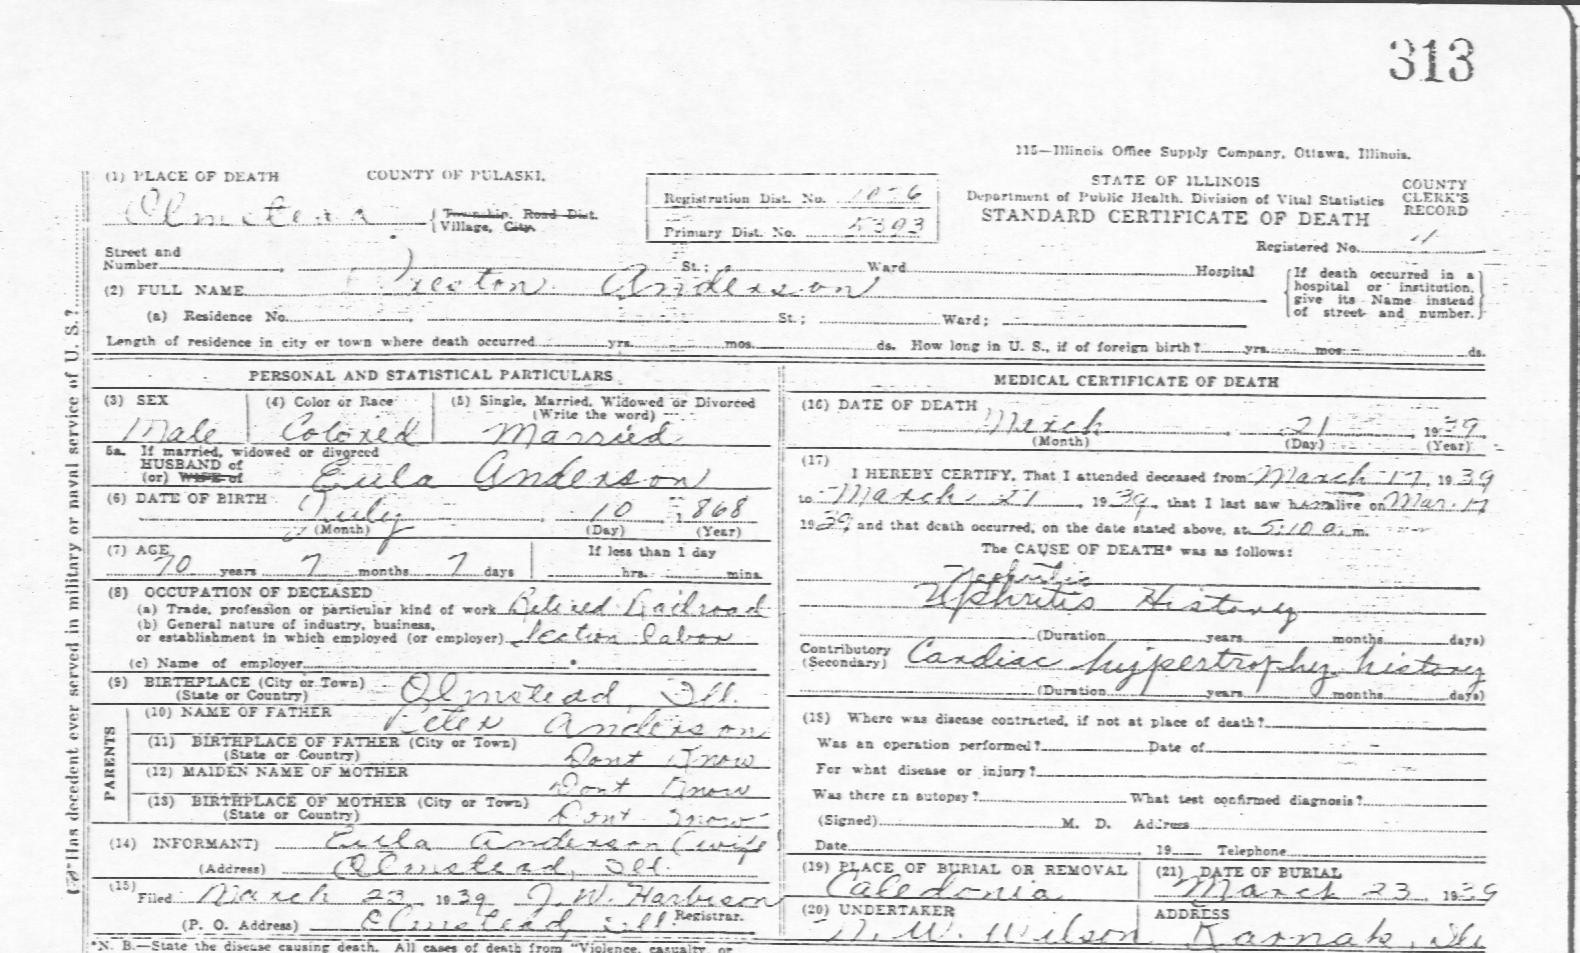 313
115—Illinois Office Supply Company, Ottawa, Illinois.
(1) PLACE OF DEATH COUNTY OF PULASKI.
Olmstead { Township. Road Dist. Village, City.
Registration Dist. No. 10-6
Primary Dist. No. 5393
STATE OF ILLINOIS
Department of Public Health. Division of Vital Statistics
STANDARD CERTIFICATE OF DEATH
COUNTY CLERK'S RECORD
Registered No. 11
Street and Number St.; Ward Hospital
{If death occurred in a hospital or institution, give its Name instead of street and number.}
(2) FULL NAME Preston Anderson
(a) Residence No. St.; Ward;
Length of residence in city or town where death occurred yrs. mos. ds. How long in U. S., if of foreign birth? yrs. mos. ds.
PERSONAL AND STATISTICAL PARTICULARS
(3) SEX (4) Color or Race (5) Single, Married, Widowed or Divorced (Write the word)
Male Colored Married
5a. If married, widowed or divorced
HUSBAND of
(or) WIFE of Eula Anderson
(6) DATE OF BIRTH July 10, 1868
(Month) (Day) (Year)
(7) AGE If less than 1 day
70 years 7 months 7 days hrs. mins.
(8) OCCUPATION OF DECEASED
(a) Trade, profession or particular kind of work Retired Railroad
(b) General nature of industry, business,
or establishment in which employed (or employer) Section labor
(c) Name of employer
(9) BIRTHPLACE (City or Town)
(State or Country) Olmstead, Ill.
PARENTS
(10) NAME OF FATHER Peter Anderson
(11) BIRTHPLACE OF FATHER (City or Town)
(State or Country) Dont Know
(12) MAIDEN NAME OF MOTHER
Dont Know
(13) BIRTHPLACE OF MOTHER (City or Town)
(State or Country) Dont Know
(14) INFORMANT) Eula Anderson (wife)
(Address) Olmstead, Ill.
(15) Filed March 23 1939 J. W. Harbison
Registrar.
(P. O. Address) Olmstead, Ill.
*N. B.—State the disease causing death. All cases of death from "Violence, casualty, or
"Has decedent ever served in military or naval service of U. S.?
MEDICAL CERTIFICATE OF DEATH
(16) DATE OF DEATH
March 21, 1939
(Month) (Day) (Year)
(17)
I HEREBY CERTIFY, That I attended deceased from March 17, 1939
to March 21, 1939, that I last saw him alive on Mar. 17
1939 and that death occurred, on the date stated above, at 5:10 a. m.
The CAUSE OF DEATH* was as follows:
Nephritis
Uphritis History
(Duration years months days)
Contributory (Secondary) Cardiac hypertrophy history
(Duration years months days)
(18) Where was disease contracted, if not at place of death?
Was an operation performed? Date of
For what disease or injury?
Was there an autopsy? What test confirmed diagnosis?
(Signed) M. D. Address
Date 19 Telephone
(19) PLACE OF BURIAL OR REMOVAL (21) DATE OF BURIAL
Caledonia March 23 1939
(20) UNDERTAKER ADDRESS
W. Wilson Karnak, Ill